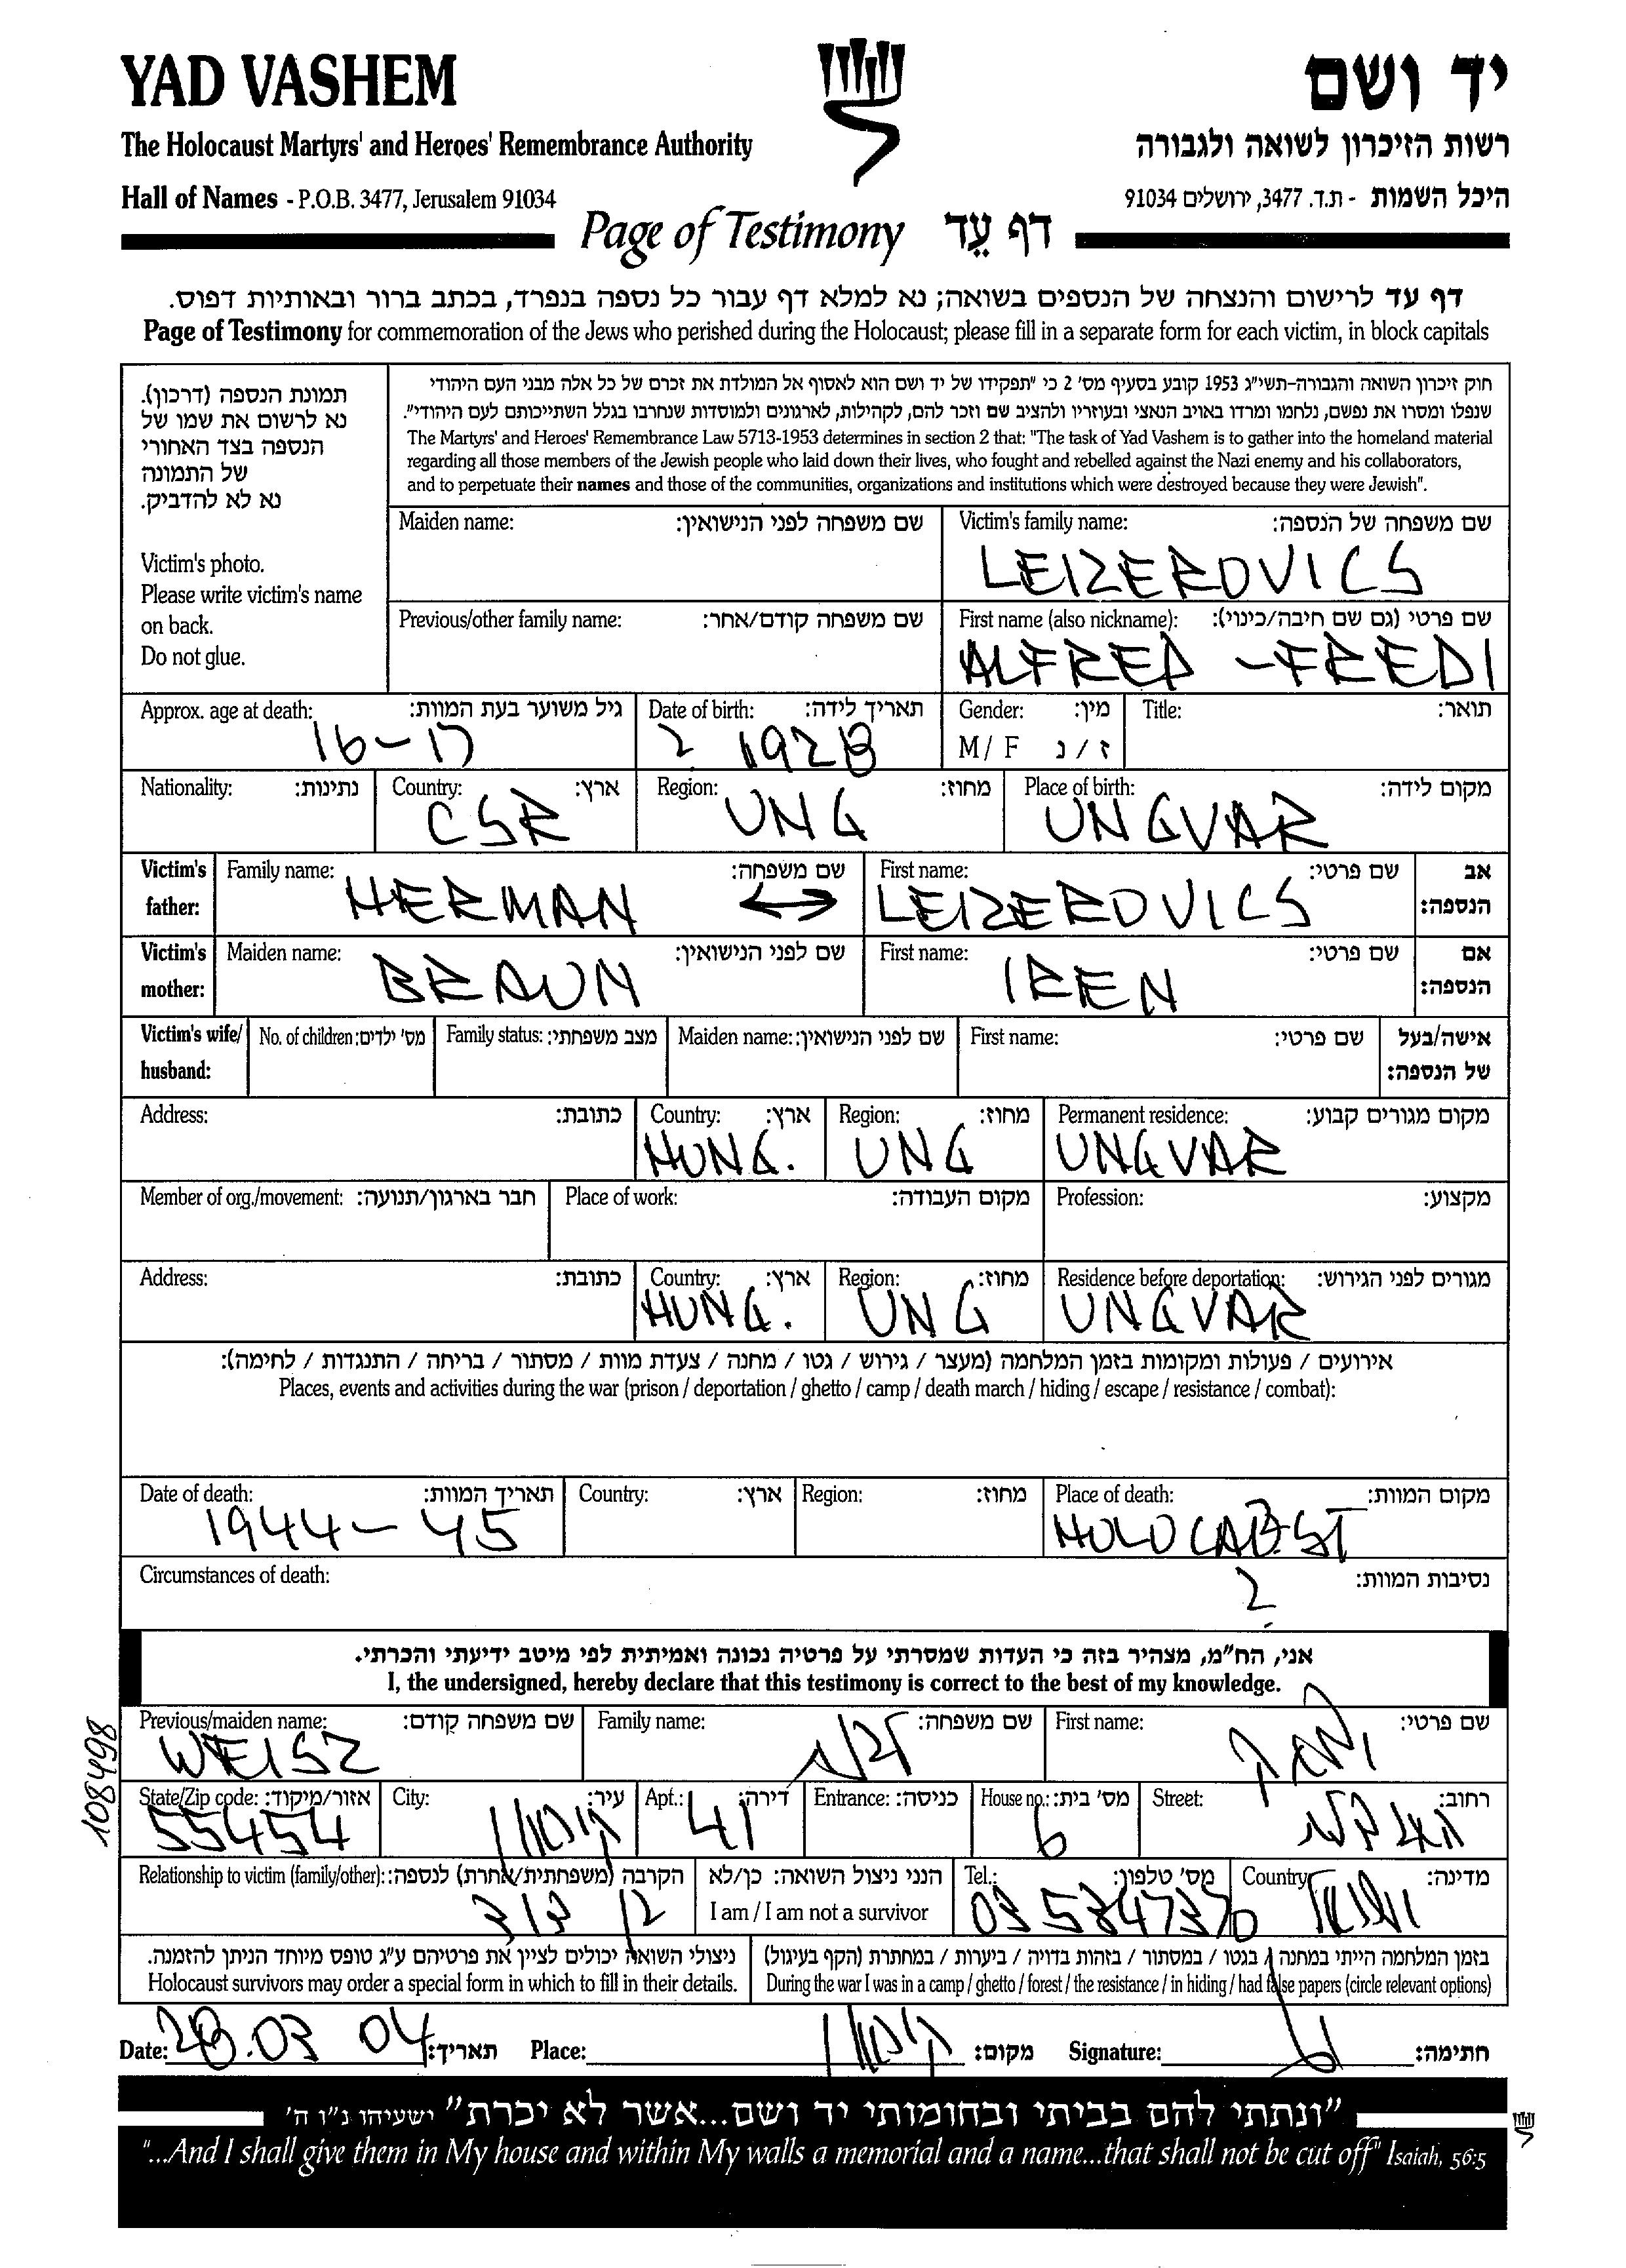 YAD VASHEM
יד ושם
The Holocaust Martyrs' and Heroes' Remembrance Authority
רשות הזיכרון לשואה ולגבורה
Hall of Names - P.O.B. 3477, Jerusalem 91034
היכל השמות - ת.ד. 3477, ירושלים 91034
Page of Testimony דף עֵד
דף עד לרישום והנצחה של הנספים בשואה; נא למלא דף עבור כל נספה בנפרד, בכתב ברור ובאותיות דפוס.
Page of Testimony for commemoration of the Jews who perished during the Holocaust; please fill in a separate form for each victim, in block capitals
תמונת הנספה (דרכון).
נא לרשום את שמו של
הנספה בצד האחורי
של התמונה
נא לא להדביק.
Victim's photo.
Please write victim's name
on back.
Do not glue.
חוק זיכרון השואה והגבורה-תשי"ג 1953 קובע בסעיף מס' 2 כי "תפקידו של יד ושם הוא לאסוף אל המולדת את זכרם של כל אלה מבני העם היהודי
שנפלו ומסרו את נפשם, נלחמו ומרדו באויב הנאצי ובעוזריו ולהציב שם וזכר להם, לקהילות, לארגונים ולמוסדות שנחרבו בגלל השתייכותם לעם היהודי".
The Martyrs' and Heroes' Remembrance Law 5713-1953 determines in section 2 that: "The task of Yad Vashem is to gather into the homeland material
regarding all those members of the Jewish people who laid down their lives, who fought and rebelled against the Nazi enemy and his collaborators,
and to perpetuate their names and those of the communities, organizations and institutions which were destroyed because they were Jewish".
Maiden name: שם משפחה לפני הנישואין:
Victim's family name: שם משפחה של הנספה:
LEIZEROVICS
Previous/other family name: שם משפחה קודם/אחר:
First name (also nickname): שם פרטי (גם שם חיבה/כינוי):
ALFRED - FREDI
Approx. age at death: גיל משוער בעת המוות: Date of birth: תאריך לידה: Gender: מין: Title: תואר:
16-17 ? 1928 M / F ז / נ
Nationality: נתינות: Country: ארץ: Region: מחוז: Place of birth: מקום לידה:
CSR UNG UNGVAR
Victim's father: Family name: שם משפחה: First name: שם פרטי: אב הנספה:
HERMAN ↔ LEIZEROVICS
Victim's mother: Maiden name: שם לפני הנישואין: First name: שם פרטי: אם הנספה:
BRAUN IREN
Victim's wife/ husband: No. of children: מס' ילדים: Family status: מצב משפחתי: Maiden name: שם לפני הנישואין: First name: שם פרטי: אישה/בעל של הנספה:
Address: כתובת: Country: ארץ: Region: מחוז: Permanent residence: מקום מגורים קבוע:
HUNG. UNG UNGVAR
Member of org./movement: חבר בארגון/תנועה: Place of work: מקום העבודה: Profession: מקצוע:
Address: כתובת: Country: ארץ: Region: מחוז: Residence before deportation: מגורים לפני הגירוש:
HUNG. UNG UNGVAR
אירועים / פעולות ומקומות בזמן המלחמה (מעצר / גירוש / גטו / מחנה / צעדת מוות / מסתור / בריחה / התנגדות / לחימה):
Places, events and activities during the war (prison / deportation / ghetto / camp / death march / hiding / escape / resistance / combat):
Date of death: תאריך המוות: Country: ארץ: Region: מחוז: Place of death: מקום המוות:
1944-45 HOLOCAUST
Circumstances of death: נסיבות המוות:
?
אני, הח"מ, מצהיר בזה כי העדות שמסרתי על פרטיה נכונה ואמיתית לפי מיטב ידיעתי והכרתי.
I, the undersigned, hereby declare that this testimony is correct to the best of my knowledge.
Previous/maiden name: שם משפחה קודם: Family name: שם משפחה: First name: שם פרטי:
WEISZ
State/Zip code: אזור/מיקוד: City: עיר: Apt.: דירה: Entrance: כניסה: House no.: מס' בית: Street: רחוב:
55454 41 6
Relationship to victim (family/other): הקרבה (משפחתית/אחרת) לנספה: הנני ניצול השואה: כן/לא Tel.: מס' טלפון: Country מדינה:
בן דוד I am / I am not a survivor 03 5347370 ישראל
ניצולי השואה יכולים לציין את פרטיהם ע"ג טופס מיוחד הניתן להזמנה.
Holocaust survivors may order a special form in which to fill in their details.
בזמן המלחמה הייתי במחנה / בגטו / במסתור / בזהות בדויה / ביערות / במחתרת (הקף בעיגול)
During the war I was in a camp / ghetto / forest / the resistance / in hiding / had false papers (circle relevant options)
Date: 28.03 04 תאריך: Place: מקום: Signature: חתימה:
"ונתתי להם בביתי ובחומותי יד ושם...אשר לא יכרת" ישעיהו נ"ו ה'
"...And I shall give them in My house and within My walls a memorial and a name...that shall not be cut off" Isaiah, 56:5
108498